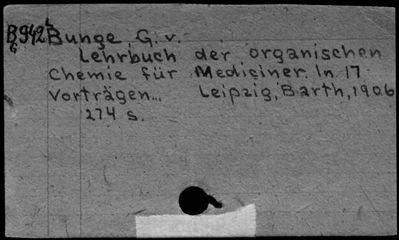 B942 Bunge, G. v.
Lehrbuch der organischen
Chemie für Mediciner. In 17
Vorträgen... Leipzig, Barth, 1906
274 s.